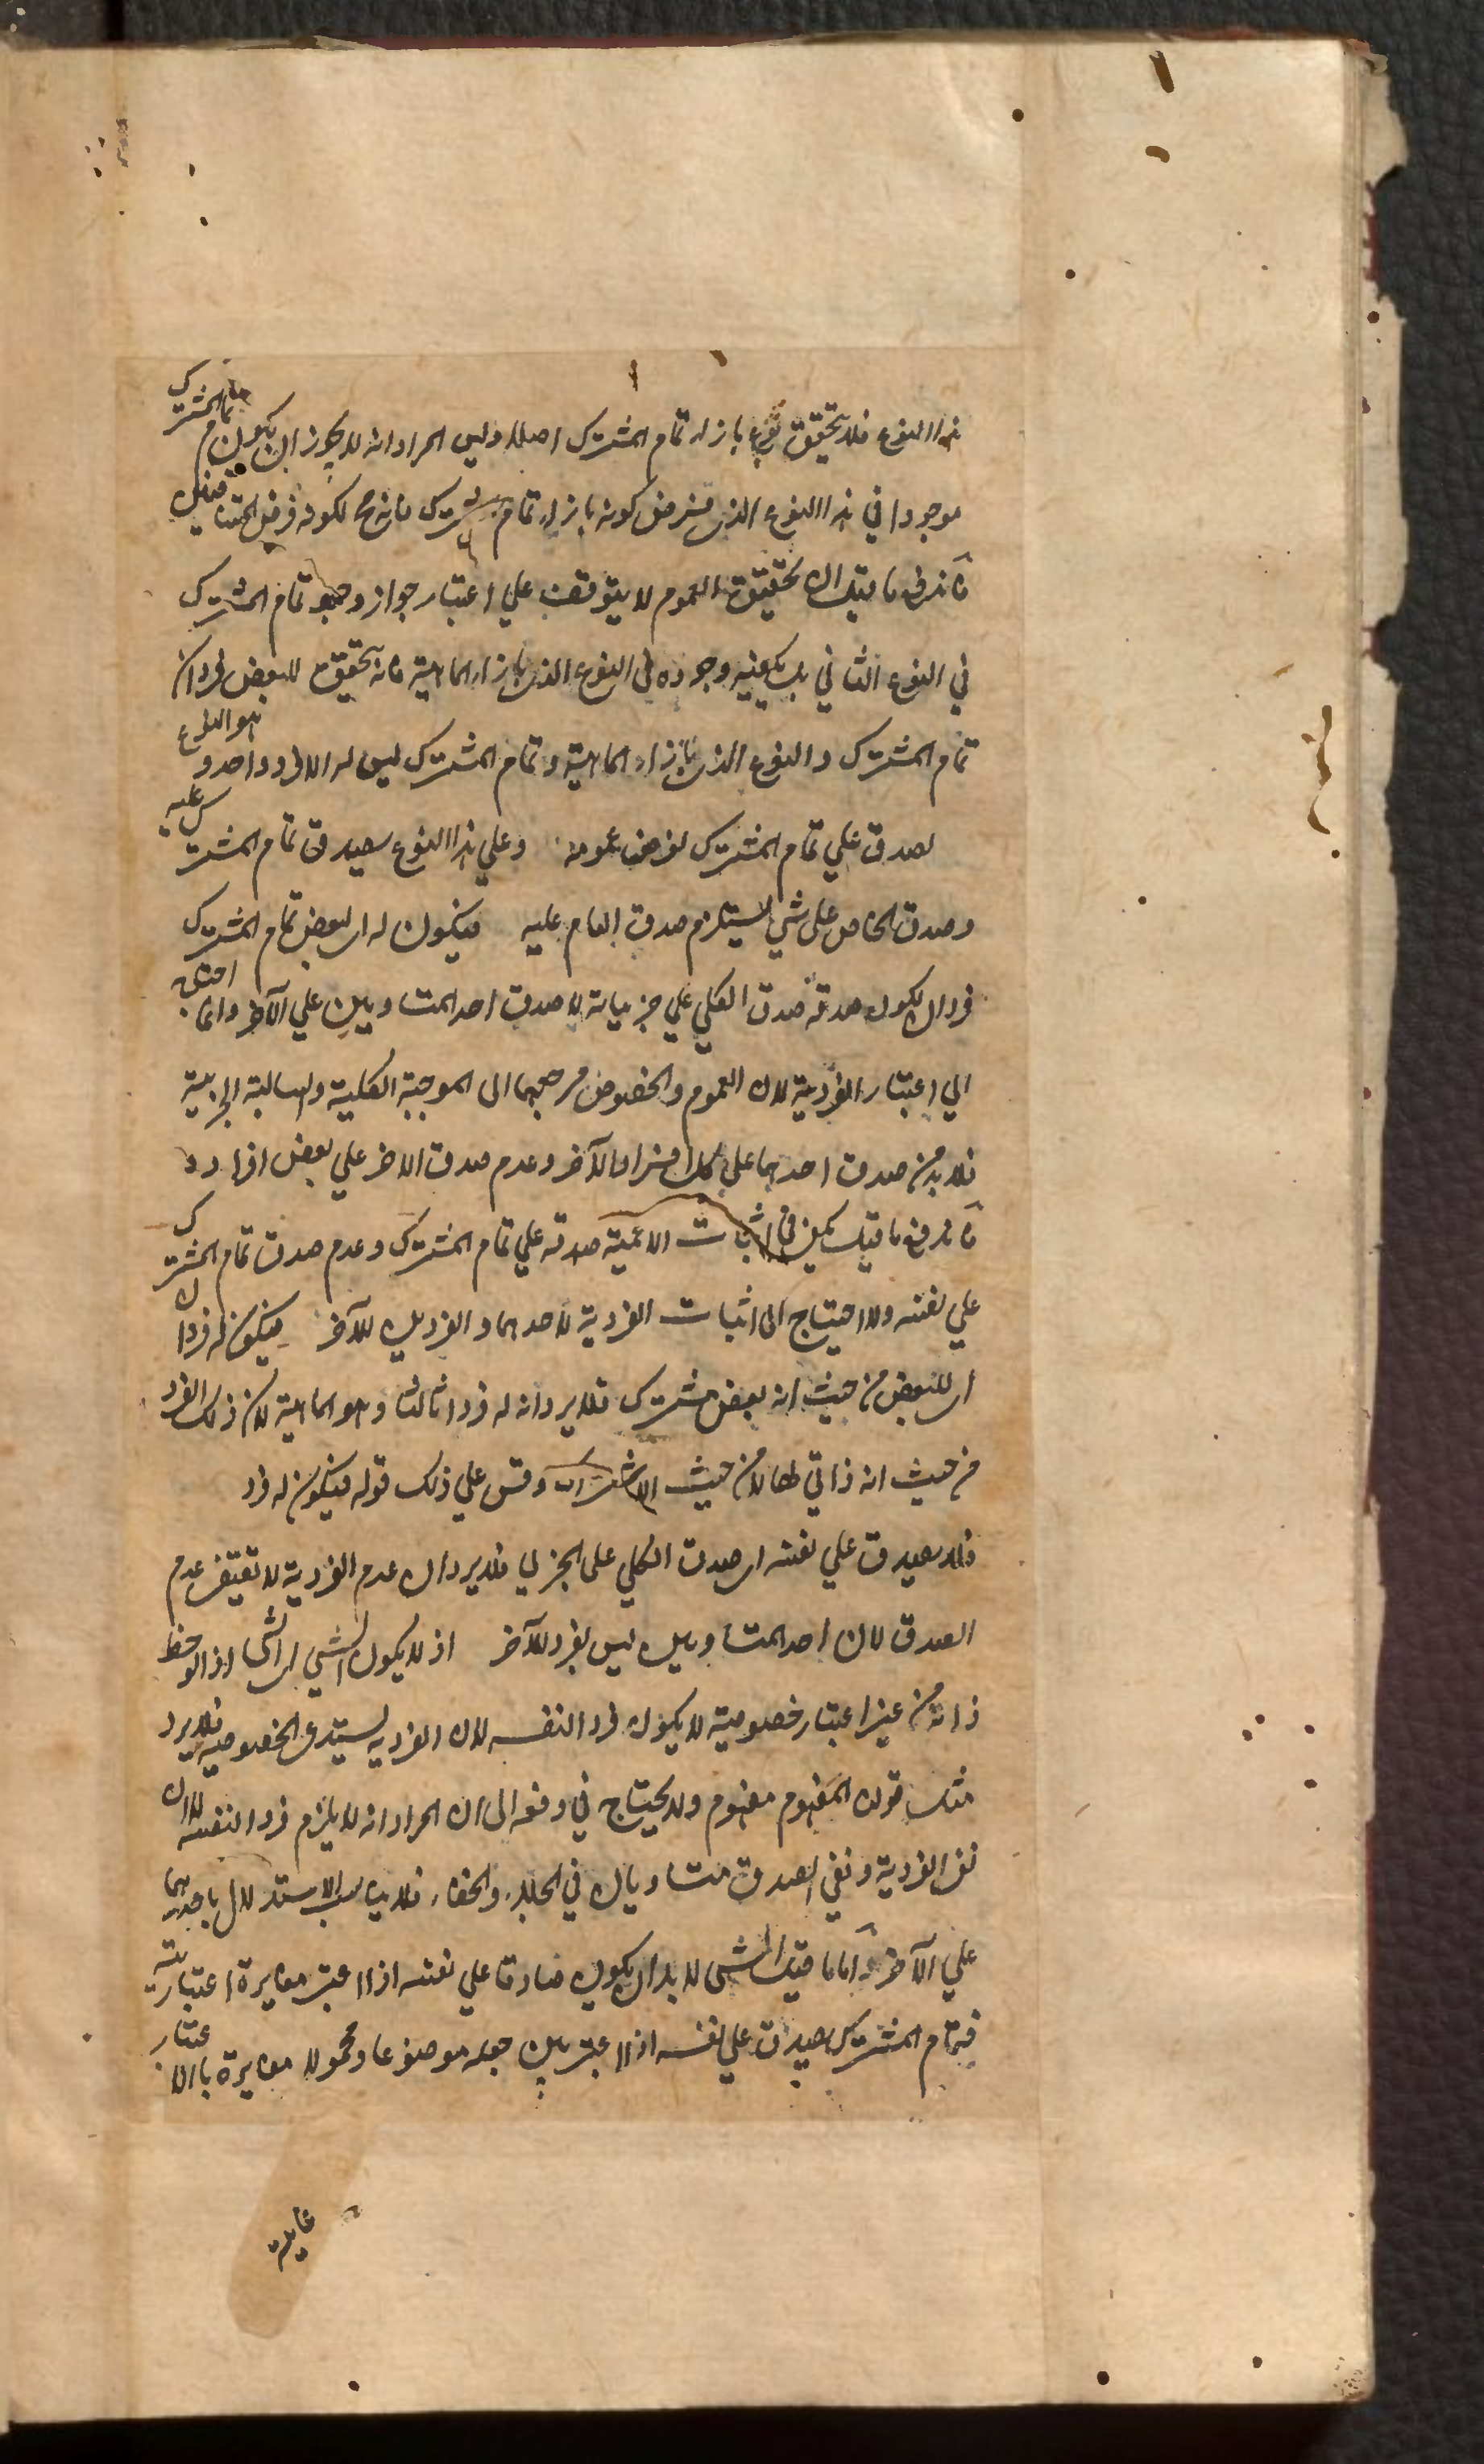 هذا النوع فلا يتحقق نوع بازاء تمام المشترك اصلا وليس المراد انه لا يجوز ان يكون تمام المشترك
موجودا في هذا النوع الذي فرض كونه بازاء تمام مشترك فانه ح لكونه فرض المتنافيين
فاندفع ما قيل ان تحقيق العموم لا يتوقف علي اعتبار جواز وجود تمام المشترك
في النوع الثاني بل يكفيه وجوده في النوع الذي بازاء الماهية فانه يتحقق للبعض فردان
تمام المشترك والنوع الذي بازاء الماهية وتمام المشترك ليس له الا فرد واحد وهو النوع
لصدق علي تمام المشترك لفرض عمومه وعلي هذا النوع لصدق تمام المشترك عليه
وصدق الخاص علي شي يستلزم صدق العام عليه فيكون له اي لبعض تمام المشترك
فردان يكون صدقه صدق الكلي علي جزئياته لا صدق احد المتساويين علي الآخر وانما احتيج
الي اعتبار الفردية لان العموم والخصوص مرجعهما الي الموجبة الكلية والسالبة الجزئية
فلا بد من صدق احدهما علي كل افراد الآخر وعدم صدق الاخر علي بعض افراده
فاندفع ما قيل يكفي في اثبات الاعمية صدقه علي تمام المشترك وعدم صدق تمام المشترك
علي نفسه ولا احتياج الي اثبات الفردية لاحدهما والفردين للآخر فيكون له فردان
اي للبعض من حيث انه بعض مشترك فلا يرد انه له فردا ثالثا وهو الماهية لان ذلك الفرد
من حيث انه ذاتي لها لا من حيث الاشتراك وقس علي ذلك قوله فيكون له فرد
فلا يصدق علي نفسه اي صدق الكلي علي الجزئي فلا يرد ان عدم الفردية لا تقتضي عدم
الصدق لان احد المتساويين ليس بفرد للآخر اذ لا يكون الشي اي الشي اذا لوحظ
ذاته من غير اعتبار خصوصية لا يكون فردا لنفسه لان الفردية يستدعي الخصوصية فلا يرد
مثل قولك المفهوم مفهوم ولا يحتاج في دفعه الي ان المراد انه لا يلزم فردا لنفسه لان
نفي الفردية ونفي الصدق متساويان في الجلاء والخفاء فلا يناسب الاستدلال باحدهما
علي الآخر واما ما قيل الشي لا بد ان يكون صادقا علي نفسه اذا اعتبر مغايرة اعتبارية
فتمام المشترك يصدق علي نفسه اذا اعتبر بين جعله موضوعا ومحمولا مغايرة بالاعتبار